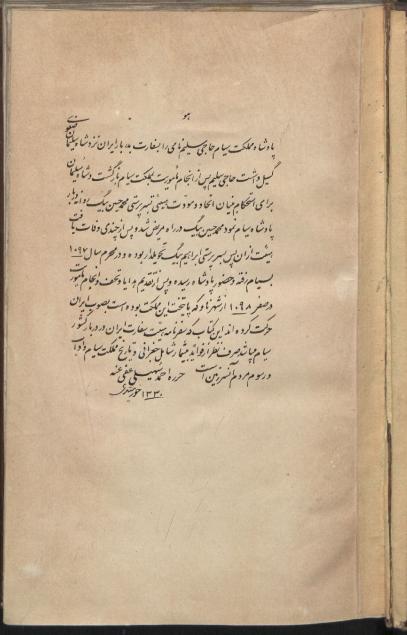 هو
پادشاه مملکت سیام حاجی سلیم نامی را بسفارت بدربار ایران نزد شاه سلیمان صفوی
گسیل داشت حاجی سلیم پس از انجام مأموریت بمملکت سیام بازگشت و شاه سلیمان
برای استحکام بنیان اتحاد و مودت هیئتی بسرپرستی محمد حسین بیگ روانه دربار
پادشاه سیام نمود محمد حسین بیگ در راه مریض شد و پس از چندی وفات یافت
هیئت از ان پس بسرپرستی ابراهیم بیگ تحویلدار بوده و در محرم سال ۱۰۹۶
بسیام رفته و حضور پادشاه رسیده و پس از تقدیم هدایا و تحف و انجام مأموریت
در صفر ۱۰۹۸ از شهر ناو که پایتخت این مملکت بوده است بصوب ایران
حرکت کرده اند این کتاب که سفرنامه هیئت سفارت ایران در دربار کشور
سیام میباشد صرف نظر از فواید بیشمار شامل جغرافی و تاریخ مملکت سیام و آداب
و رسوم مردم آن سرزمین است حرره احمد سهیلی عفی عنه
۱۳۳۰ خورشیدی